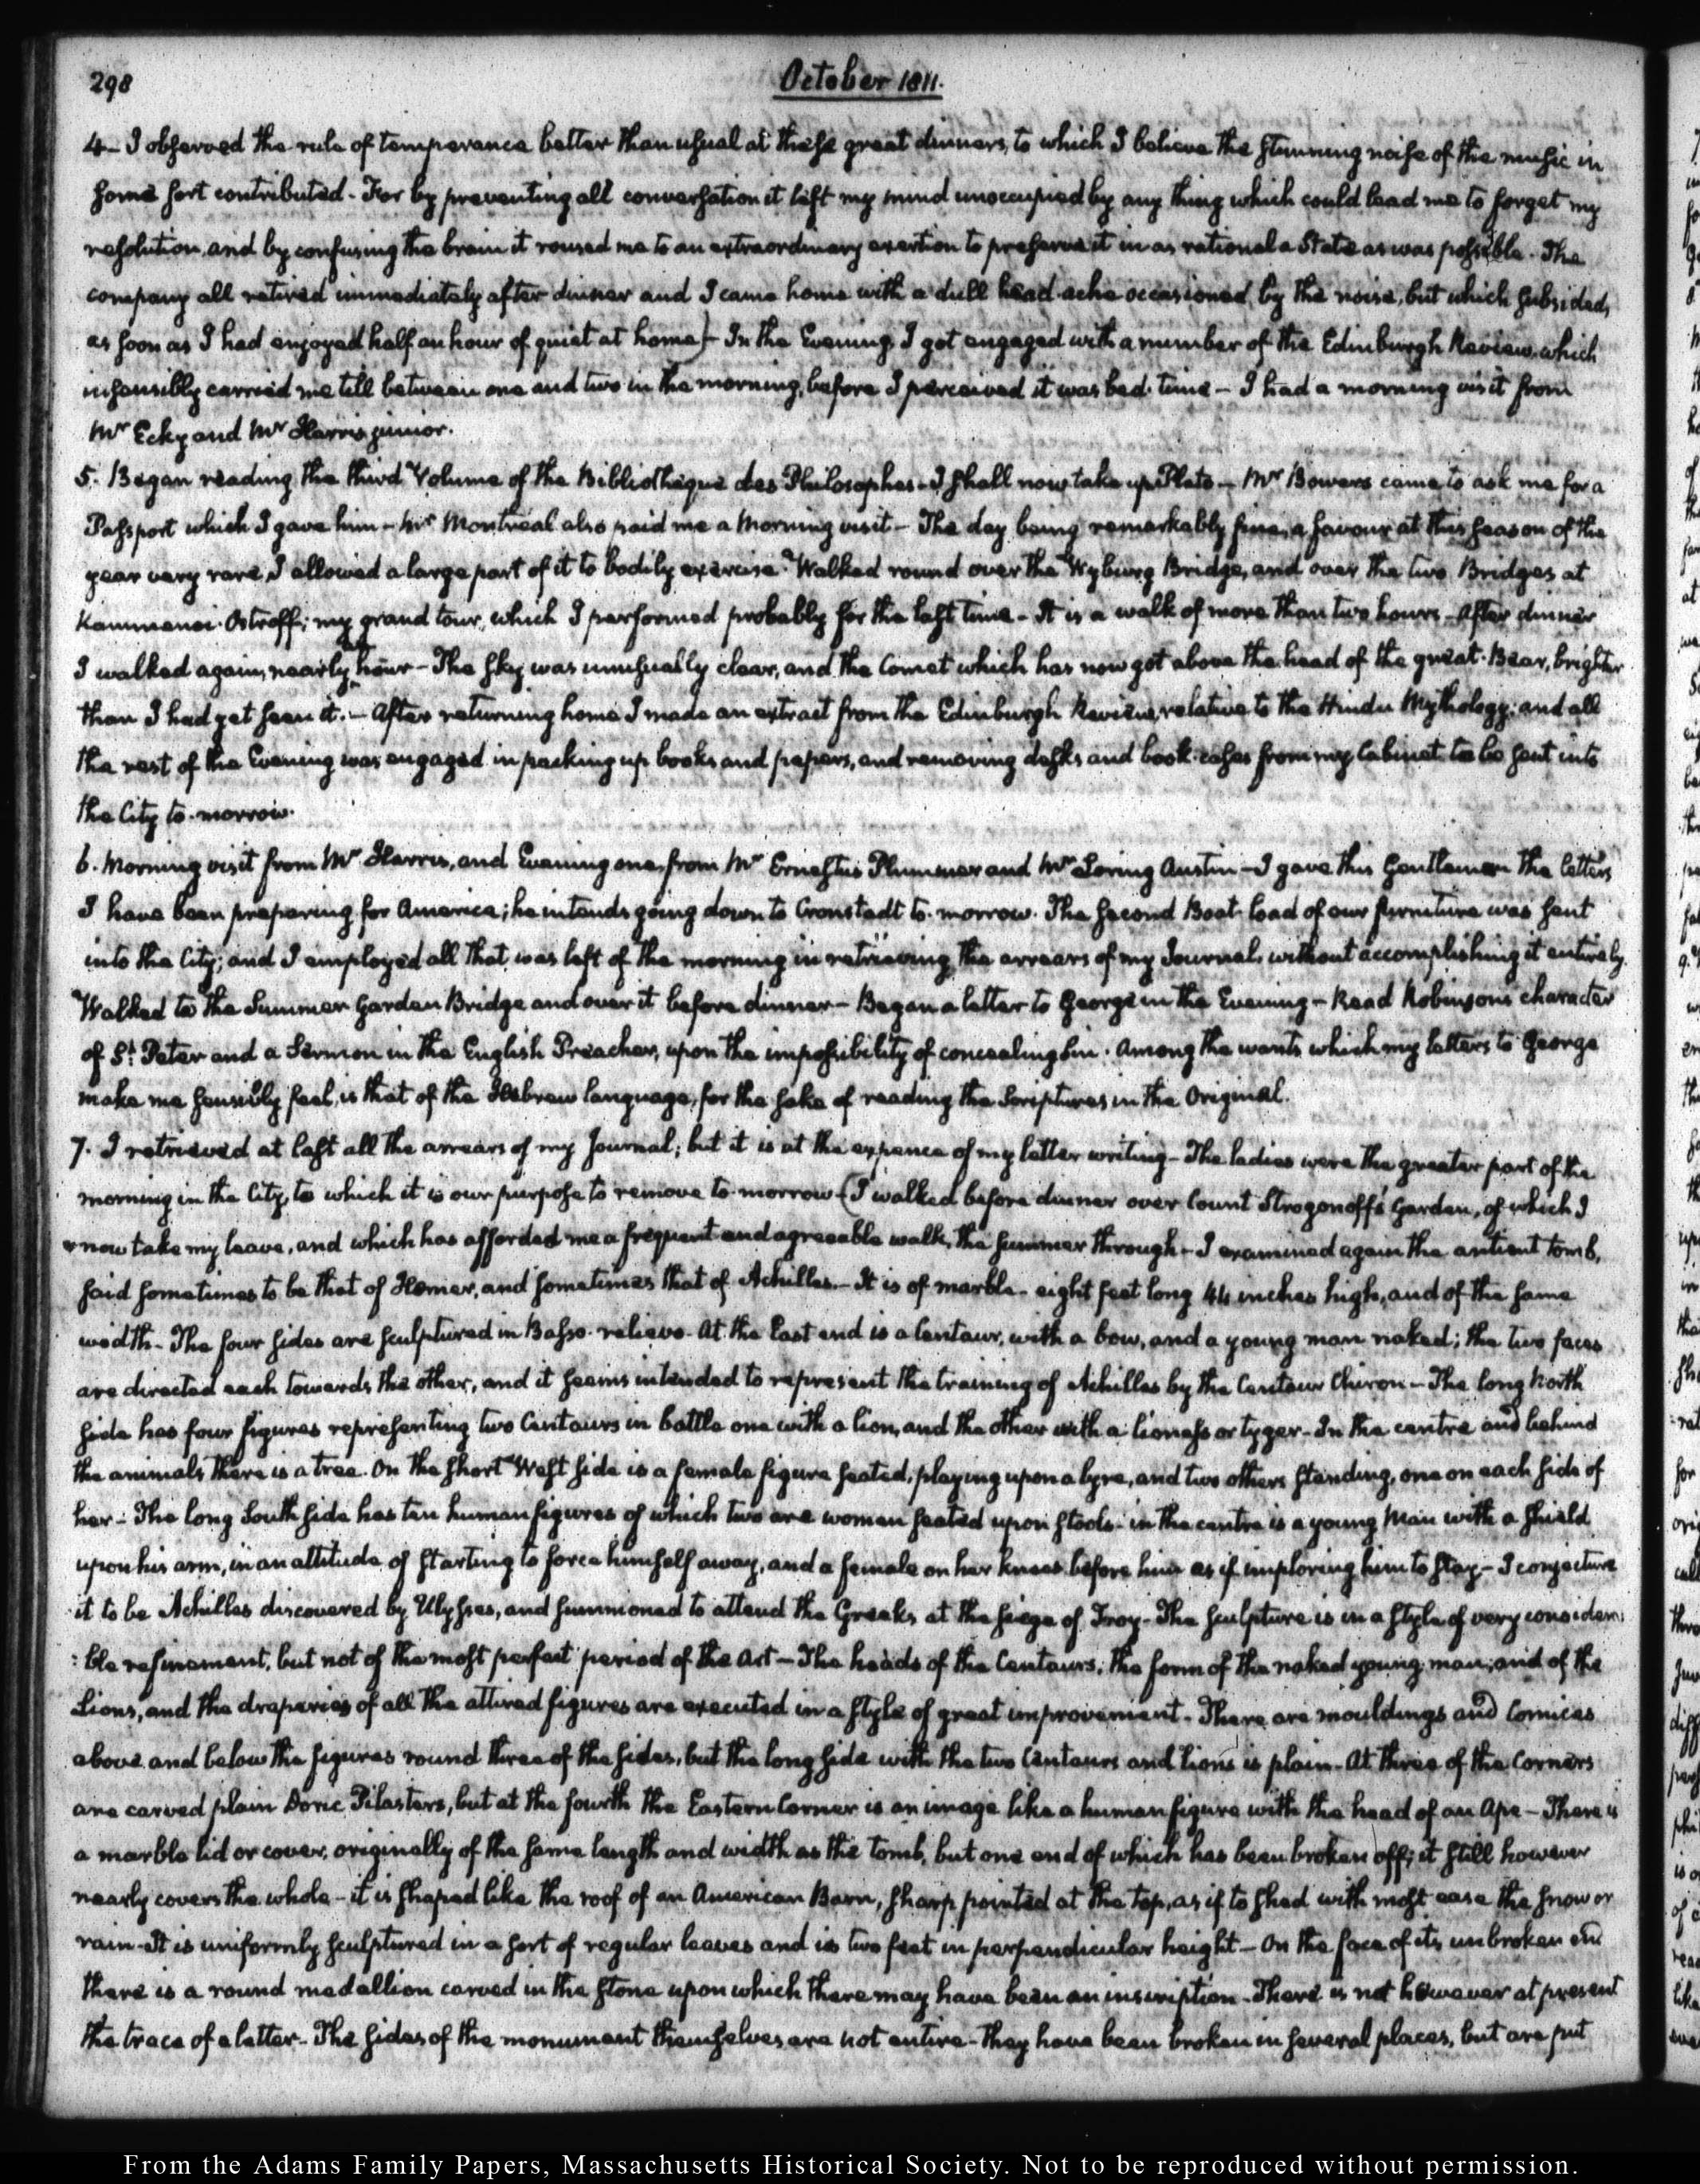 298
October 1811.
4- I observed the rule of temperance better than usual at these great dinners, to which I believe the stunning noise of the music in
some sort contributed - For by preventing all conversation it left my mind unoccupied by any thing which could lead me to forget my
resolution, and by confusing the brain it roused me to an extraordinary exertion to preserve it in as rational a State as was possible. The
company all retired immediately after dinner and I came home with a dull head-ache occasioned by the noise, but which subsided,
as soon as I had enjoyed half an hour of quiet at home) - In the Evening, I got engaged with a number of the Edinburgh Review, which
insensibly carried me till between one and two in the morning, before I perceived it was bed-time - I had a morning visit from
Mr Ecky and Mr Harris junior.
5. Began reading the third Volume of the Bibliotheque des Philosophes - I shall now take up Plato - Mr Bowers came to ask me for a
Passport which I gave him - Mr Montreal also paid me a Morning visit - The day being remarkably fine, a favour at this season of the
year very rare, I allowed a large part of it to bodily exercise. Walked round over the Wyburg Bridge, and over the two Bridges at
Kammenoi-Ostroff; my grand tour, which I performed probably for the last time - It is a walk of more than two hours - After dinner
I walked again, nearly an hour - The sky was unusually clear, and the Comet which has now got above the head of the great-Bear, brighter
than I had yet seen it. - After returning home I made an extract from the Edinburgh Review, relative to the Hindu Mythology; and all
the rest of the Evening was engaged in packing up books and papers, and removing desks and book-cases from my Cabinet to be sent into
the City to-morrow.
6. Morning visit from Mr Harris, and Evening one, from Mr Ernestus Plummer and Mr Loring Austin - I gave this Gentleman the letters
I have been preparing for America; he intends going down to Cronstadt to-morrow. The second Boat-load of our furniture was sent
into the City; and I employed all that was left of the morning in retrieving the arrears of my Journal, without accomplishing it entirely.
Walked to the Summer Garden Bridge and over it before dinner - Began a letter to George in the Evening - Read Robinson's character
of St. Peter and a Sermon in the English Preacher, upon the impossibility of concealing sin. Among the wants which my letters to George
make me sensibly feel, is that of the Hebrew language, for the sake of reading the Scriptures in the Original.
7. I retrieved at last all the arrears of my Journal; but it is at the expence of my letter writing - The ladies were the greater part of the
morning in the City, to which it is our purpose to remove to-morrow - (I walked before dinner over Count Strogonoff's Garden, of which I
now take my leave, and which has afforded me a frequent and agreeable walk, the summer through - I examined again the antient tomb,
said sometimes to be that of Homer, and sometimes that of Achilles. - It is of marble - eight feet long 44 inches high, and of the same
width - The four sides are sculptured in Basso-relievo. At the East end is a Centaur, with a bow, and a young man naked; the two faces
are directed each towards the other, and it seems intended to represent the training of Achilles by the Centaur Chiron - The long North
side has four figures representing two Centaurs in battle one with a lion, and the other with a lioness or tyger - In the centre and behind
the animals there is a tree. On the short West side is a female figure seated, playing upon a lyre, and two others standing, one on each side of
her - The long South side has ten human figures of which two are women seated upon stools - in the centre is a young Man with a shield
upon his arm, in an attitude of starting to force himself away, and a female on her knees before him as if imploring him to stay - I conjecture
it to be Achilles discovered by Ulysses, and summoned to attend the Greeks at the siege of Troy - The sculpture is in a style of very considera:
:ble refinement, but not of the most perfect period of the Art - The heads of the Centaurs, the form of the naked young man, and of the
Lions, and the draperies of all the attired figures are executed in a style of great improvement - There are mouldings and Cornices
above and below the figures round three of the sides, but the long side with the two Centaurs and lions is plain - At three of the Corners
are carved plain Doric Pilasters, but at the fourth the Eastern Corner is an image like a human figure with the head of an Ape - There is
a marble lid or cover, originally of the same length and width as the tomb, but one end of which has been broken off; it still however
nearly covers the whole - it is shaped like the roof of an American Barn, sharp pointed at the top, as if to shed with most ease the snow or
rain - It is uniformly sculptured in a sort of regular leaves and is two feet in perpendicular height - On the face of its unbroken end
there is a round medallion carved in the stone upon which there may have been an inscription - There is not however at present
the trace of a letter - The sides of the monument themselves are not entire - they have been broken in several places, but are put
From the Adams Family Papers, Massachusetts Historical Society. Not to be reproduced without permission.